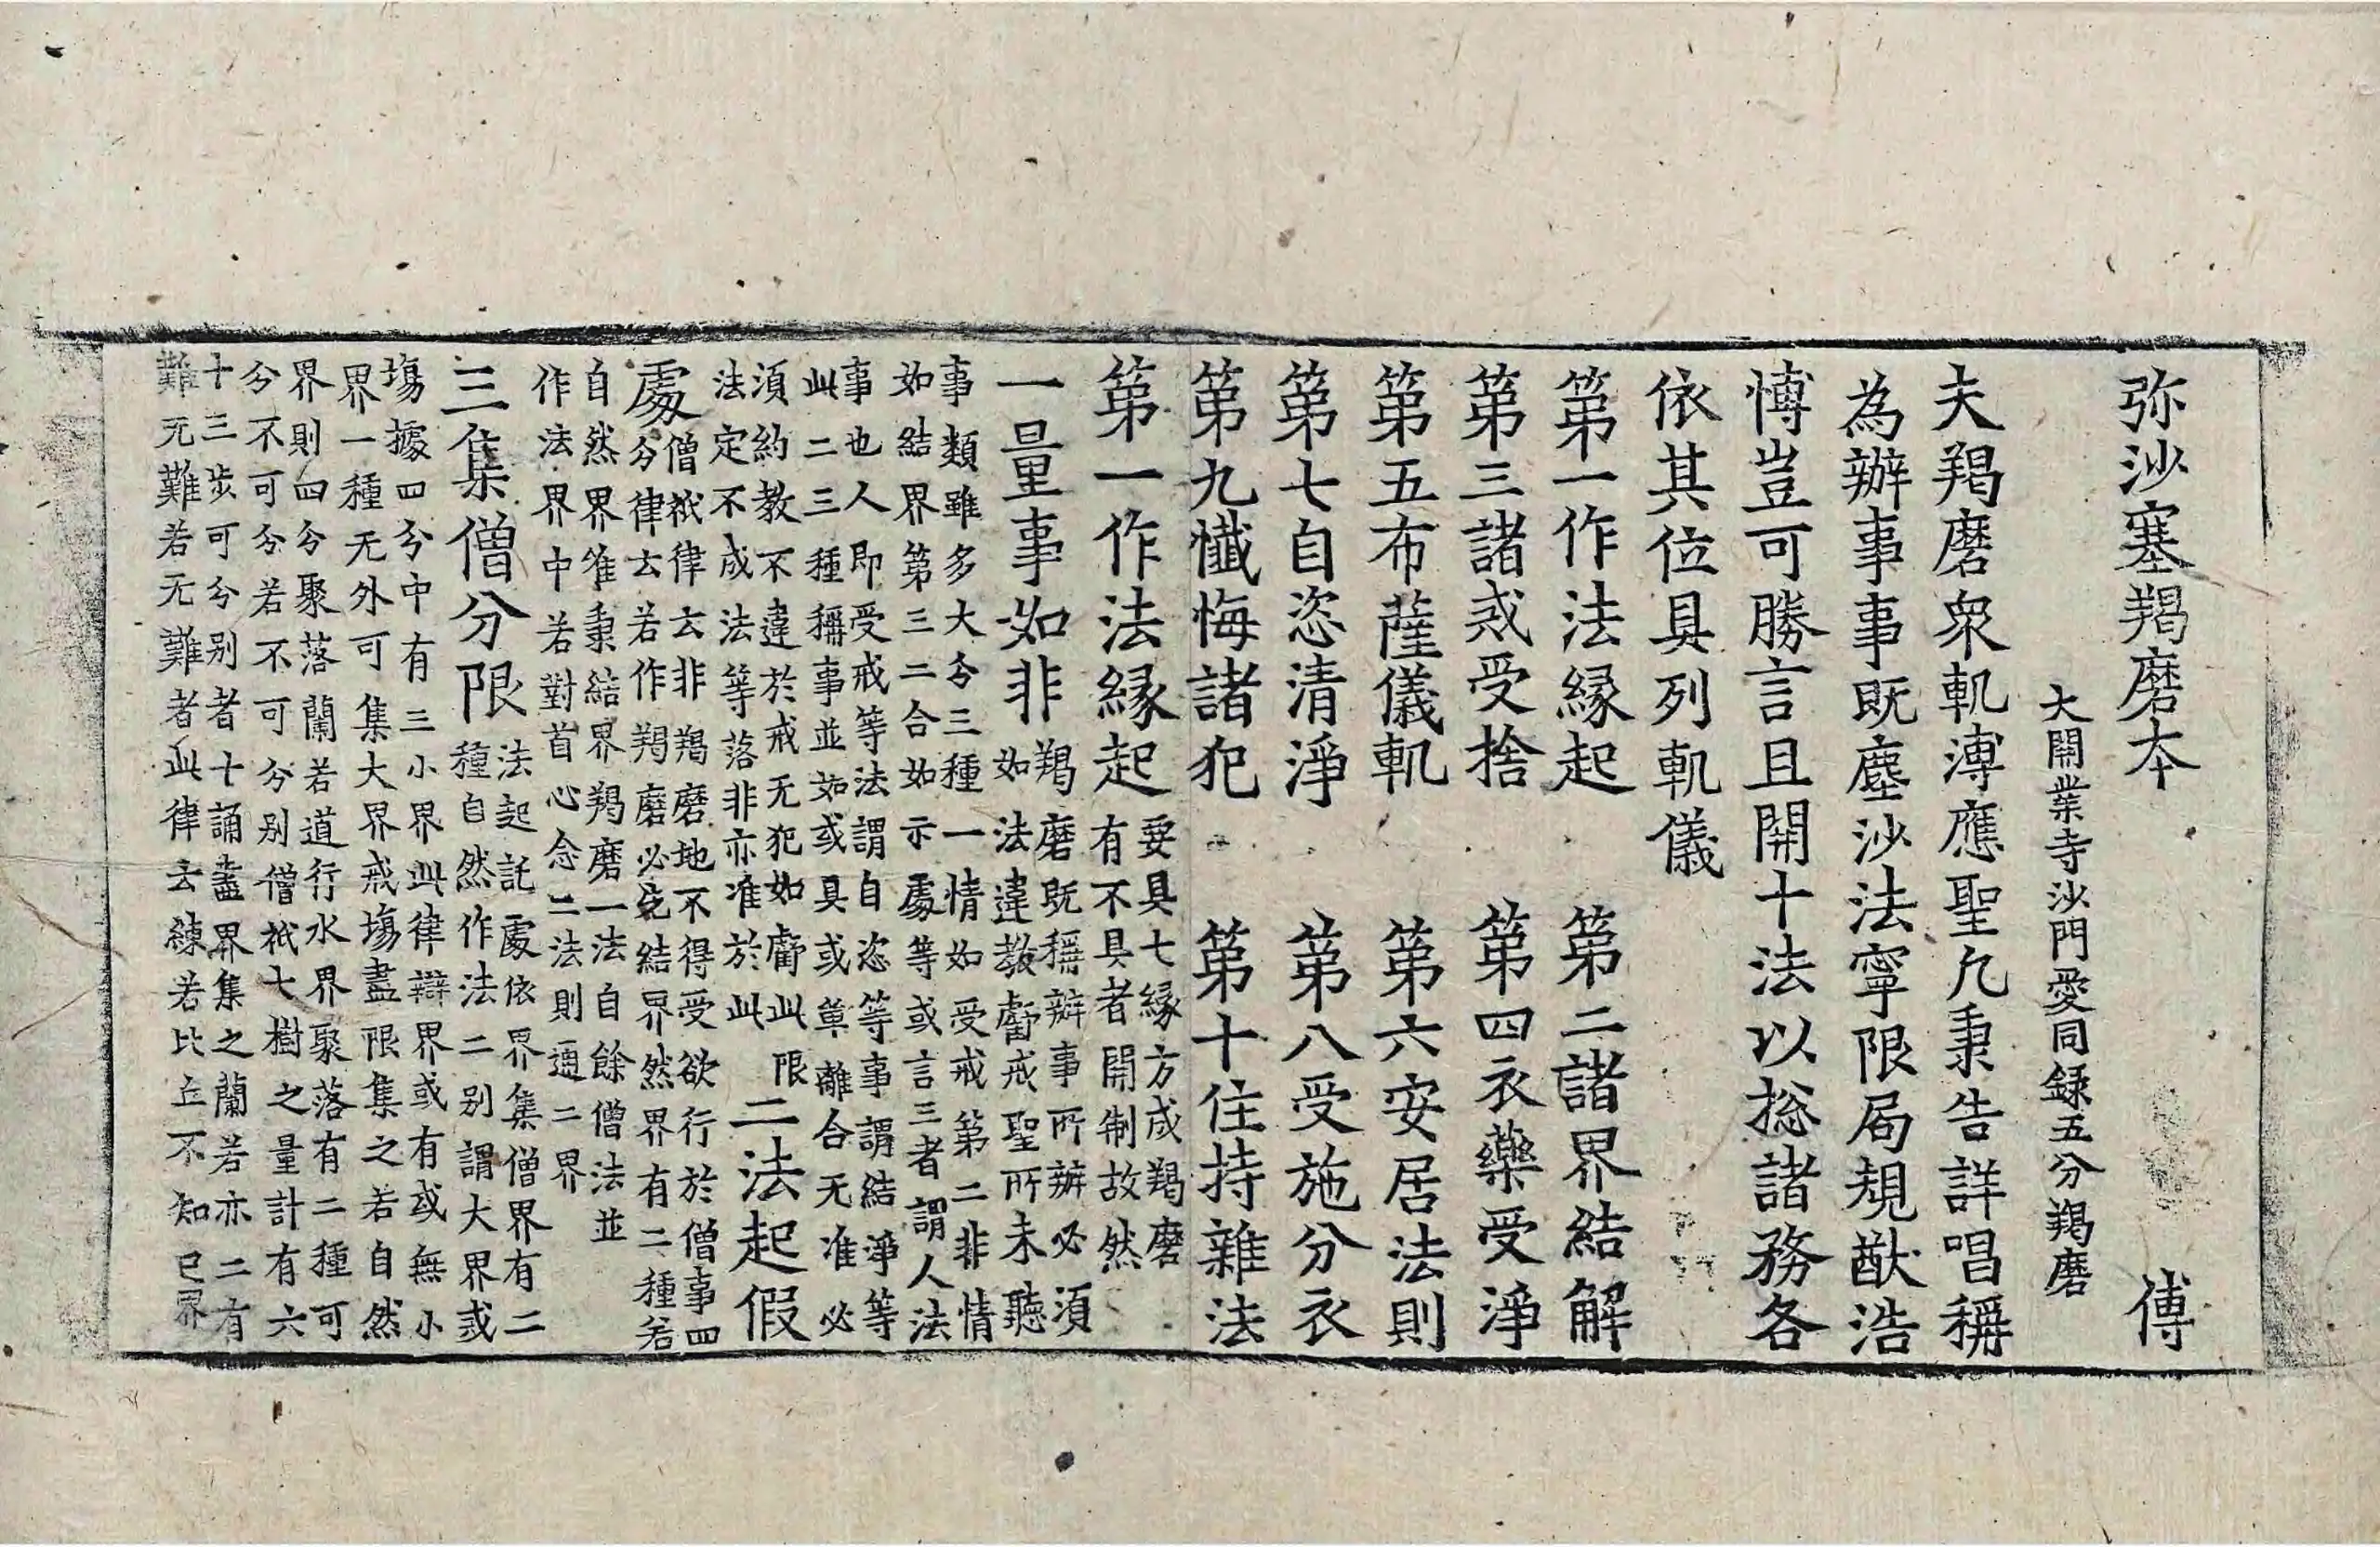 弥沙塞羯磨本　傅
大開業寺沙門愛同録五分羯磨
夫羯磨衆軌溥應聖凢秉告詳唱稱
為辦事事既塵沙法寧限局規猷浩
博豈可勝言且開十法以捴諸務各
依其位具列軌儀
第一作法緣起　第二諸界結解
第三諸戒受捨　第四衣藥受淨
第五布薩儀軌　第六安居法則
第七自恣清淨　第八受施分衣
第九懺悔諸犯　第十住持雜法
第一作法緣起　要具七緣方成羯磨
有不具者開制故然
一量事如非　羯磨既稱辦事所辦必須
如法違教虧戒聖所未聽
事類雖多大分三種一情如受戒第二非情
如結界第三二合如示處等或言三者謂人法
事也人即受戒等法謂自恣等事謂結淨等
此二三種稱事並如或具或單離合无准必
須約教不違於戒无犯如虧此限
法定不成法等落非亦准於此　二法起假
處　僧祇律云非羯磨地不得受欲行於僧事四
分律云若作羯磨必先結界然界有二種若
自然界唯秉結界羯磨一法自餘僧法並
作法界中若對首心念二法則通二界
三集僧分限　法起託處依界集僧界有二
種自然作法二別謂大界或
塲據四分中有三小界此律辯界或有或無小
界一種无外可集大界戒塲盡限集之若自然
界則四分聚落蘭若道行水界聚落有二種可
分不可分若不可分別僧祇七樹之量計有六
十三步可分別者十誦盡界集之蘭若亦二有
難无難若无難者此律云練若比丘不知已界